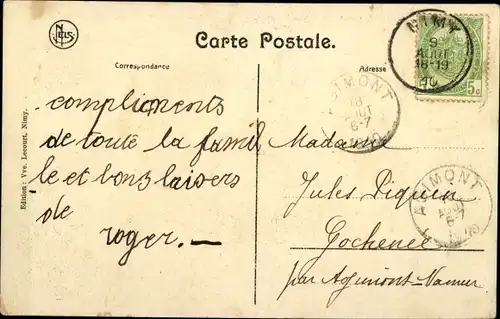 NELS
Carte Postale.
Correspondance
Adresse
NIMY
9
AOUT
18-19
10
5c
AGIMONT
6-7
AGIMONT
6-7
Edition : Vve. Lecourt, Nimy.
compliements
de toute la famil
le et bons baisers
de
roger. —
Madame
Jules Piquen
Gochenée
par Agimont-Namur